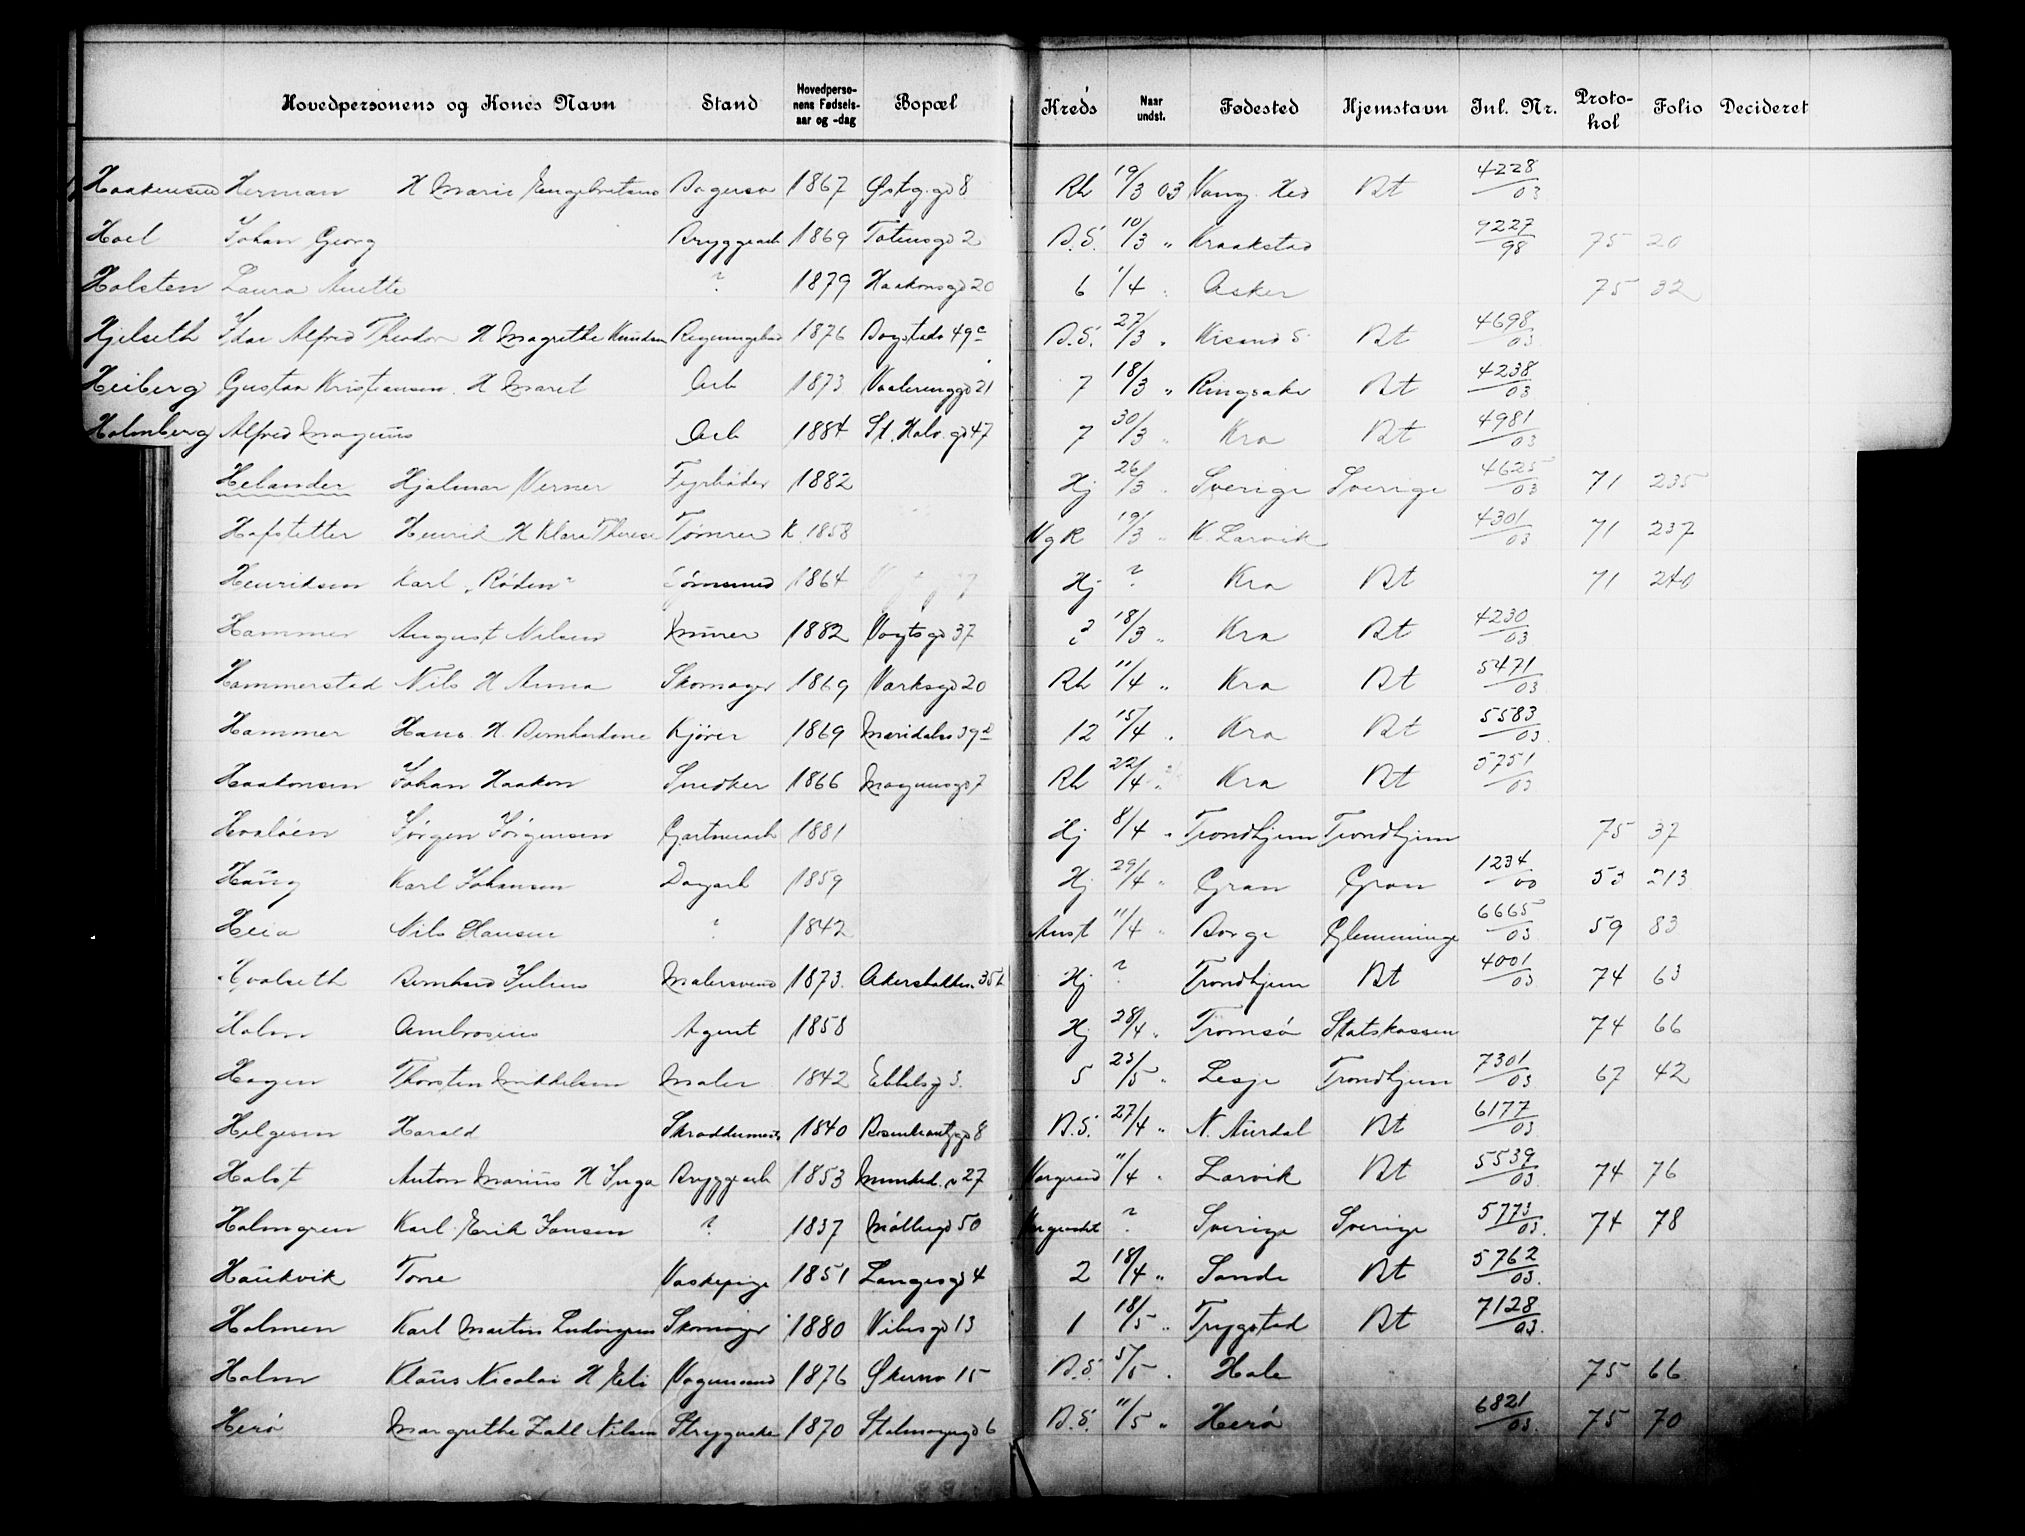 Hovedpersonens og Kones Navn Stand Hovedperso-nens Fødsels-aar og -dag Bopæl Kreds Naar undst. Fødested Hjemstavn Inl. Nr. Proto-kol Folio Decideret
Haakensen Herman H Marie Engebretsen 1867 Østg.gd 8 Rh 19/3 03 Vang. Hed Bt 4228/03
Hoel Johan Georg Bryggearb 1869 Totensgd 2 B.S. 10/3 " Kraakstad 9227/98 75 20
Holsten Laura Anette ? 1879 Haakonsgd 20 6 1/4 " Asker 75 32
Hjelseth Idar Alfred Theodor H Magrethe Knudsen 1876 Bogstadv 49c B.S. 27/3 " Krsand S. Bt 4698/03
Heiberg Gustav Kristiansen. H Maret Arb 1873 Vaalerenggd 21 7 18/3 " Ringsaker Bt 4238/03
Holmberg Alfred Magnus Arb 1884 St. Halv. gd 47 7 30/3 " Kra Bt 4981/03
Helander Hjalmar Verner Fyrbøder 1882 Hj 26/3 " Sverige Sverige 4625/03 71 235
Hofstetter Henrik H Klara Therese Tømrer K. 1858 Vg R 19/3 " K. Larvik 4301/03 71 237
Henriksen Karl "Røden" 1864 Hj ? Kra Bt 71 240
Hammer August Nilsen Murer 1882 Vogtsgd 37 2 18/3 " Kra Bt 4230/03
Hammerstad Nils H Anna Skomager 1869 Verksgd 20 Rh 11/4 " Kra Bt 5471/03
Hammer Hans H. Bernhardine Kjører 1869 Maridalsv 39d 12 15/4 " Kra Bt 5583/03
Haakonsen Johan Haakon Snedker 1866 Magnusgd 7 Rh 22/4 " Kra Bt 5751/03
Hvaløen Jørgen Jørgensen Gartnerarb 1881 Hj 8/4 " Trondhjem Trondhjem 75 37
Haug Karl Johansen Dagarb 1859 Hj 29/4 " Gran Gran 1234/00 53 213
Heia Nils Hansen ? 1842 Anst 11/4 " Borge Glemminge 6665/03 59 83
Hvalseth Bernhard Julius Malersvend 1873. Akersbakken 35b Hj ? Trondhjem Bt 4001/03 74 63
Holm Ambrosius Agent 1858 Hj 28/4 " Tromsø Statskassen 74 66
Hagen Thorsten Mikkelsen Maler 1842 Ebbelsgd 3. 5 23/5 " Lesje Trondhjem 7301/03 67 42
Helgesen Harald Skræddermester 1840 Rosenkrantzgd 8 B.S. 27/4 " N. Aurdal Bt 6177/03
Holst Anton Marius H Inga Bryggearb 1853 Munked. v 27 11/4 " Larvik Bt 5539/03 74 76
Holmgren Karl Erik Jonsen ? 1837 Møllergd 50 ? Sverige Sverige 5773/03. 74 78
Haukvik Tone Vaskepige 1851 Langesgd 4 2 18/4 " Sande Bt 5762/03.
Holmen Karl Martin Ludvigsen Skomager 1880 Vibesgd 13 1 18/5 " Trygstad Bt 7128/03.
Holm Klaus Nicolai H Eli Vognmand 1876 15 B.S. 5/5 " Hole 75 66
Herø Margrethe Zahl Nilsen Strygerske 1870 6 B.S. 11/5 " Herø 6821/03. 75 70